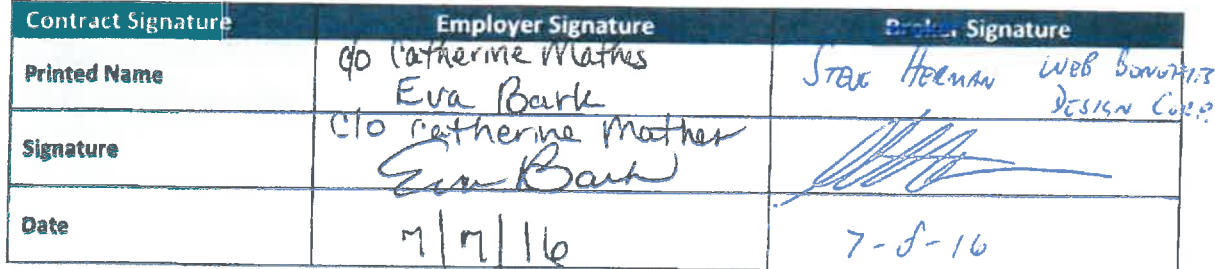 Contract Signature Employer Signature Broker Signature
Printed Name c/o Catherine Mathes Steve Herman Web Benefits
Eva Bark Design Corp
Signature c/o Catherine Mather
Eva Bark
Date 7/7/16 7-8-16